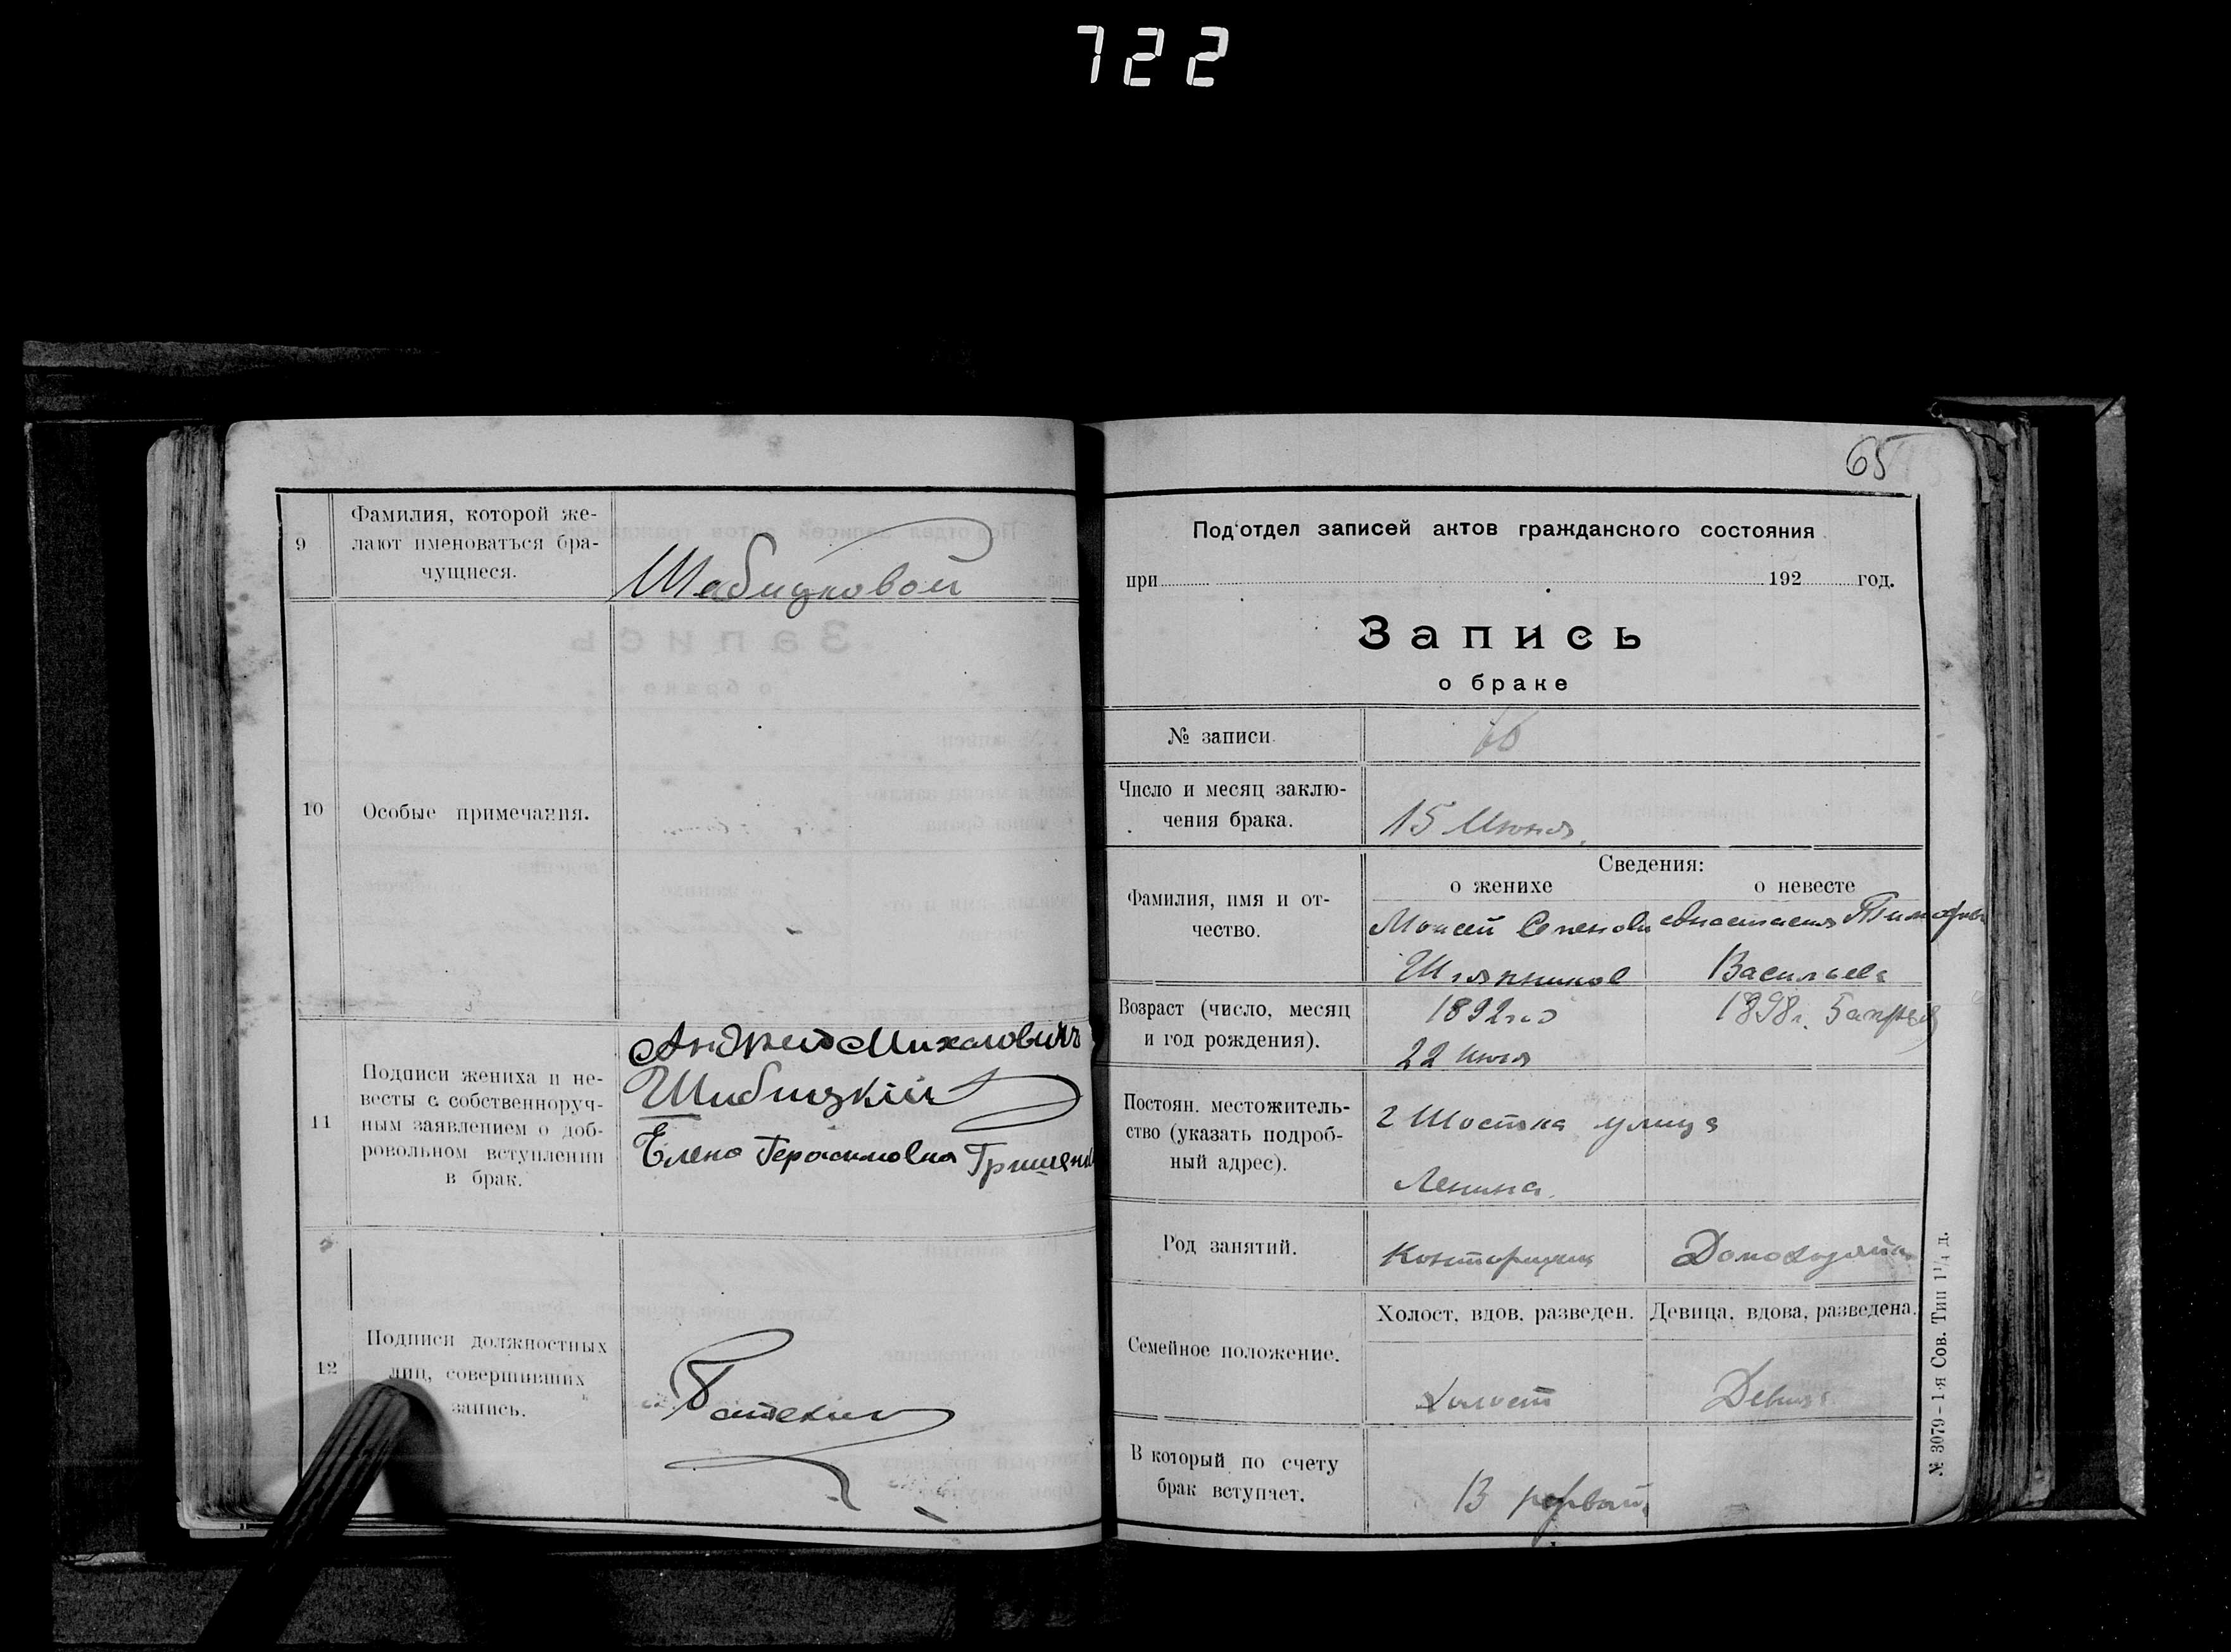 722
9
Фамилия, которой же-
лают именоваться бра-
чущиеся.
10
Особые примечания.
11
Подписи жениха и не-
весты с собственноруч-
ным заявлением о доб-
ровольном вступлении
в брак.
Михаловичъ
Шибицкій
Елена Герасимовна
12
Подписи должностных
лиц, совершивших
запись.
65
Под'отдел записей актов гражданского состояния
при 192 год.
Запись
о браке
№ записи
Число и месяц заклю-
чения брака.
15 Июня
Сведения:
о женихе о невесте
Фамилия, имя и от-
чество.
Моисей Анастасия
Шляпников Васильева
Возраст (число, месяц
и год рождения).
1892 1898г. 5 апреля
22
Постоян. местожитель-
ство (указать подроб-
ный адрес).
г Шостка улица
Ленина.
Род занятий.
Конторщик
Семейное положение.
Холост, вдов, разведен. Девица, вдова, разведена.
Холост Девица
В который по счету
брак вступает.
В первый
№ 3079 – 1-я Сов. Тип 1¹/₄ д.